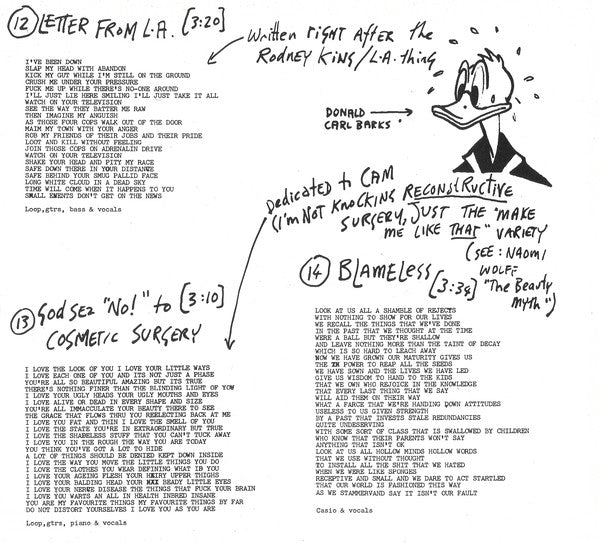 12 LETTER FROM L.A. [3:20]
Written right after the
Rodney King/L.A. thing
I'VE BEEN DOWN
SLAP MY HEAD WITH ABANDON
KICK MY GUT WHILE I'M STILL ON THE GROUND
CRUSH ME UNDER YOUR PRESSURE
FUCK ME UP WHILE THERE'S NO-ONE AROUND
I'LL JUST LIE HERE SMILING I'LL JUST TAKE IT ALL
WATCH ON YOUR TELEVISION
SEE THE WAY THEY BATTER ME RAW
THEN IMAGINE MY ANGUISH
AS THOSE FOUR COPS WALK OUT OF THE DOOR
MAIM MY TOWN WITH YOUR ANGER
ROB MY FRIENDS OF THEIR JOBS AND THEIR PRIDE
LOOT AND KILL WITHOUT FEELING
JOIN THOSE COPS ON ADRENALIN DRIVE
WATCH ON YOUR TELEVISION
SHAKE YOUR HEAD AND PITY MY RACE
SAFE DOWN THERE IN YOUR DISTANCE
SAFE BEHIND YOUR SMUG PALLID FACE
LONG WHITE CLOUD IN A DEAD SKY
TIME WILL COME WHEN IT HAPPENS TO YOU
SMALL EVENTS DON'T GET ON THE NEWS
Loop,gtrs, bass & vocals
DONALD
CARL BARKS
Dedicated to CAM
(I'm Not Knocking RECONSTRUCTIVE
SURGERY, JUST THE "MAKE
ME LIKE THAT" VARIETY
(SEE: NAOMI
WOLFF
"The Beauty
Myth")
13 God sez "No!" to [3:10]
COSMETIC SURGERY
I LOVE THE LOOK OF YOU I LOVE YOUR LITTLE WAYS
I LOVE EACH ONE OF YOU AND ITS NOT JUST A PHASE
YOU'RE ALL SO BEAUTIFUL AMAZING BUT ITS TRUE
THERE'S NOTHING FINER THAN THE BLINDING LIGHT OF YOU
I LOVE YOUR UGLY HEADS YOUR UGLY MOUTHS AND EYES
I LOVE ALIVE OR DEAD IN EVERY SHAPE AND SIZE
YOU'RE ALL IMMACULATE YOUR BEAUTY THERE TO SEE
THE GRACE THAT FLOWS THRU YOU REELECTING BACK AT ME
I LOVE YOU FAT AND THIN I LOVE THE SMELL OF YOU
I LOVE THE STATE YOU'RE IN EXTRAORDINARY BUT TRUE
I LOVE THE SHABELESS STUFF THAT YOU CAN'T TUCK AWAY
I LOVE YOU IN THE ROUGH THE WAY YOU ARE TODAY
YOU THINK YOU'VE GOT A LOT TO HIDE
A LOT OF THINGS SHOULD BE DENIED KEPT DOWN INSIDE
I LOVE THE WAY YOU MOVE THE LITTLE THINGS YOU DO
I LOVE THE CLOTHES YOU WEAR DEFINING WHAT IB YOU
I LOVE YOUR AGEING FLESH YOUR HAIRY UPPER THIGHS
I LOVE YOUR BALDING HEAD YOUR XXX BEADY LITTLE EYES
I LOVE YOUR NERVE DISEASE THE THINGS THAT FUCK YOUR BRAIN
I LOVE YOU WARTS AN ALL IN HEALTH INBRED INSANE
YOU ARE MY FAVOURITE THINGS MY FAVOURITE THINGS BY FAR
DO NOT DISTORT YOURSELVES I LOVE YOU AS YOU ARE
Loop,gtrs, piano & vocals
14 BLAMELESS [3:38]
LOOK AT US ALL A SHAMBLE OF REJECTS
WITH NOTHING TO SHOW FOR OUR LIVES
WE RECALL THE THINGS THAT WE'VE DONE
IN THE PAST THAT WE THOUGHT AT THE TIME
WERE A BALL BUT THEY'RE SHALLOW
AND LEAVE NOTHING MORE THAN THE TAINT OF DECAY
WHICH IS SO HARD TO LEACH AWAY
NOW WE HAVE GROWN OUR MATURITY GIVES US
THE POWER TO REAP ALL THE SEEDS
WE HAVE SOWN AND THE LIVES WE HAVE LED
GIVE US WISDOM TO HAND TO THE KIDS
THAT WE OWN WHO REJOICE IN THE KNOWLEDGE
THAT EVERY LAST THING THAT WE SAY
WILL AID THEM ON THEIR WAY
WHAT A FARCE THAT WE'RE HANDING DOWN ATTITUDES
USELESS TO US GIVEN STRENGTH
BY A PAST THAT INVESTS STALE REDUNDANCIES
QUITE UNDESERVING
WITH SOME SORT OF CLASS THAT IS SWALLOWED BY CHILDREN
WHO KNOW THAT THEIR PARENTS WON'T SAY
ANYTHING THAT ISN'T OK
LOOK AT US ALL HOLLOW MINDS HOLLOW WORDS
THAT WE USE WITHOUT THOUGHT
TO INSTALL ALL THE SHIT THAT WE HATED
WHEN WE WERE LIKE SPONGES
RECEPTIVE AND SMALL AND WE DARE TO ACT STARTLED
THAT OUR WORLD IS FASHIONED THIS WAY
AS WE STAMMERVAND SAY IT ISN'T OUR FAULT
Casio & vocals